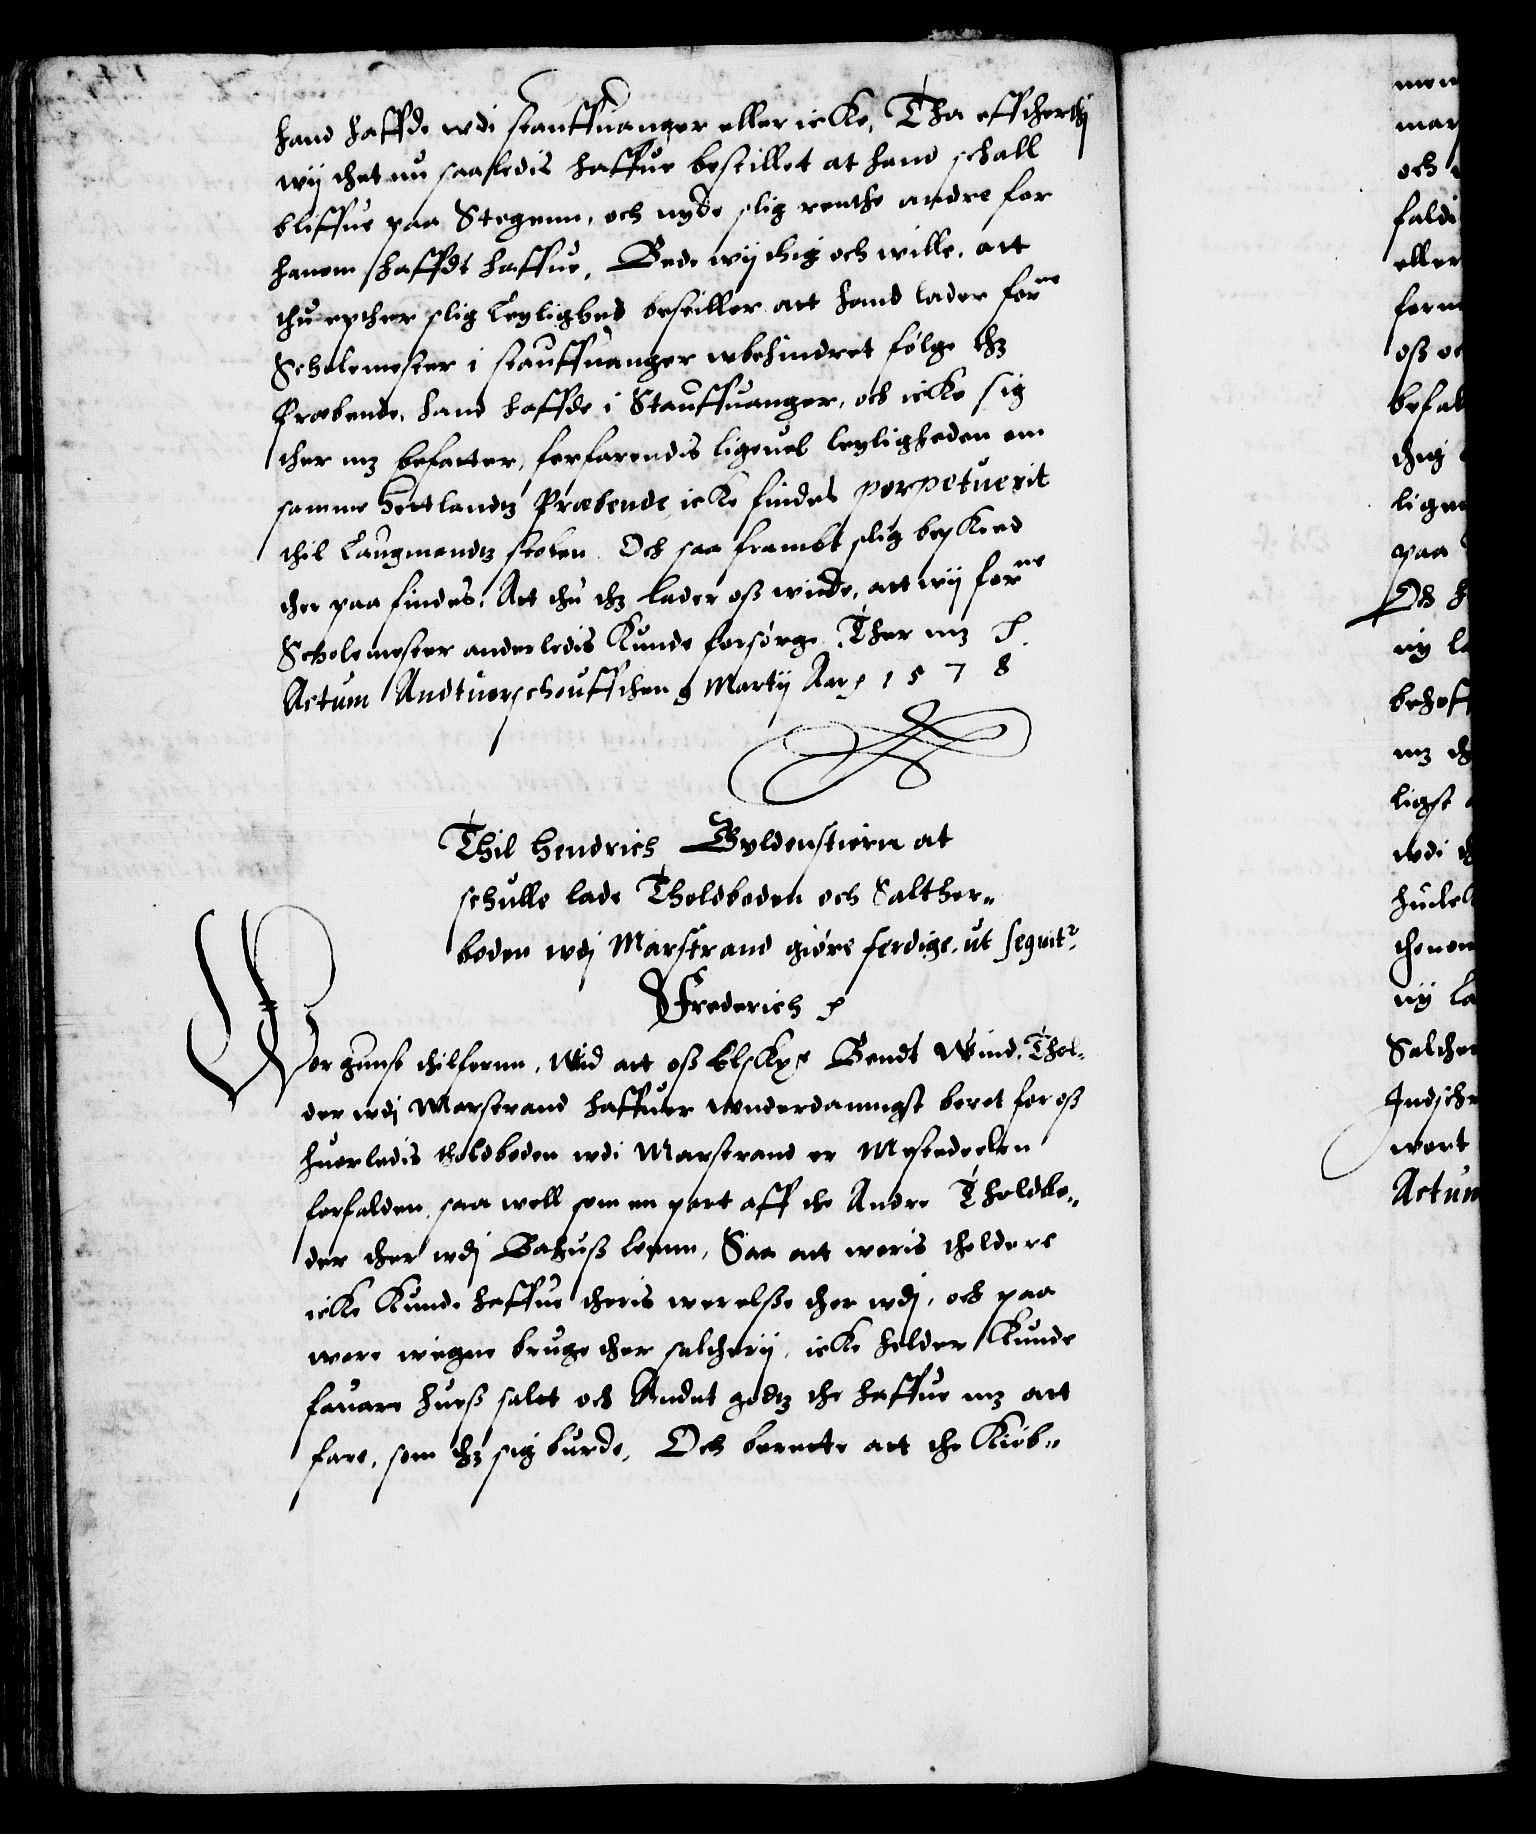 hand haffde wdi stauffuanger eller icke, Tha effther thj
wij thet nu saaledis haffue bestillet at hand schall
bliffue paa Stegenn, och nyde slig renthe andre for
hanem haffdt haffue, Bede wij thig och wille, att
thu epther slig Leylighed bestiller att hand lader forne
Scholemester i stauffuanger wbehindret følge thz
Præbende, hand haffde i Stauffuanger, och icke sig
ther mz befatter, forfarendis ligeuel leyligheden om
samme Hetlandtz Præbende icke findes perpetuerit
thil Laugmandtz stolen. Och saa frambt slig beskeed
ther paa findes, Att thu thz lader oss wide, att wij forne
Scholemester anderledis kunde forsørge. Ther mz
Actum Andtuorschouff then 9 Martij Aar 1578
Thil Hendrich Gyldenstiern at
schulle lade Tholdboden och Salther-
boden wdj Marstrand giøre ferdige, ut sequitr
Frederich
Wor gunst thilfornn, Wid att oss Elske Bendt Wind, Thol-
der wdj Marstrand haffuer wnderdannigst beret for oss
huorledis tholdboden wdi Marstrand er Mestedeelen
forfalden, saa well som en part aff the Andre Tholdbo-
der ther wdj Bahuss leenn, Saa att woris tholdere
icke kunde haffue theris werelsse ther wdj, och paa
wore wegne bruge ther saltherij, icke heller kunde
fauare huess salt och Andet godtz the haffue mz att
fare, som thz sig burde, Och berette att the Kiøb-
men
mar
och
faldi
eller
forn
oss oc
befal
thig
ligeu
paa
Och h
ny la
behoff
mz th
ligst
wdi th
huilck
thenom
ny la
Salther
Indschr
wort
Actum